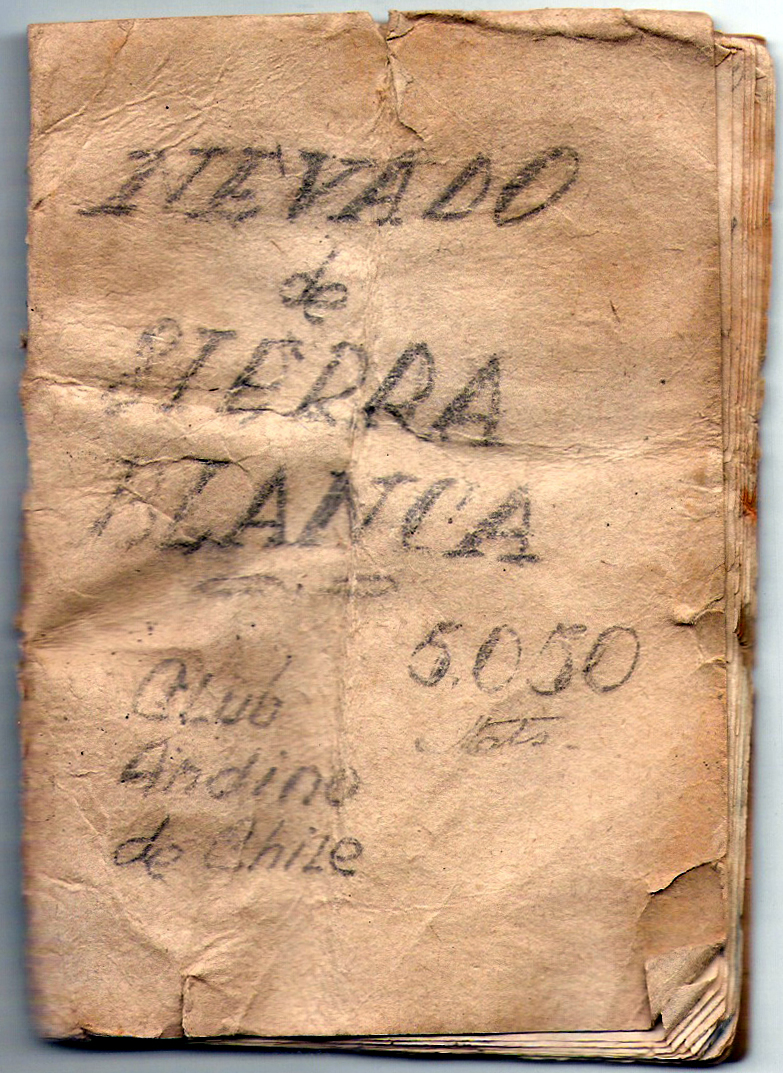 NEVADO
de
PIERRA
BLANCA
5.050
Mts.
Club
Andino
de Chile